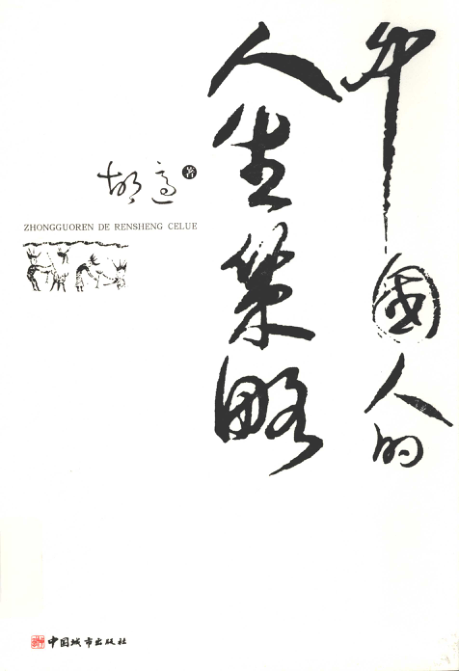 中國人的
人生策略
胡適 著
ZHONGGUOREN DE RENSHENG CELUE
中国城市出版社